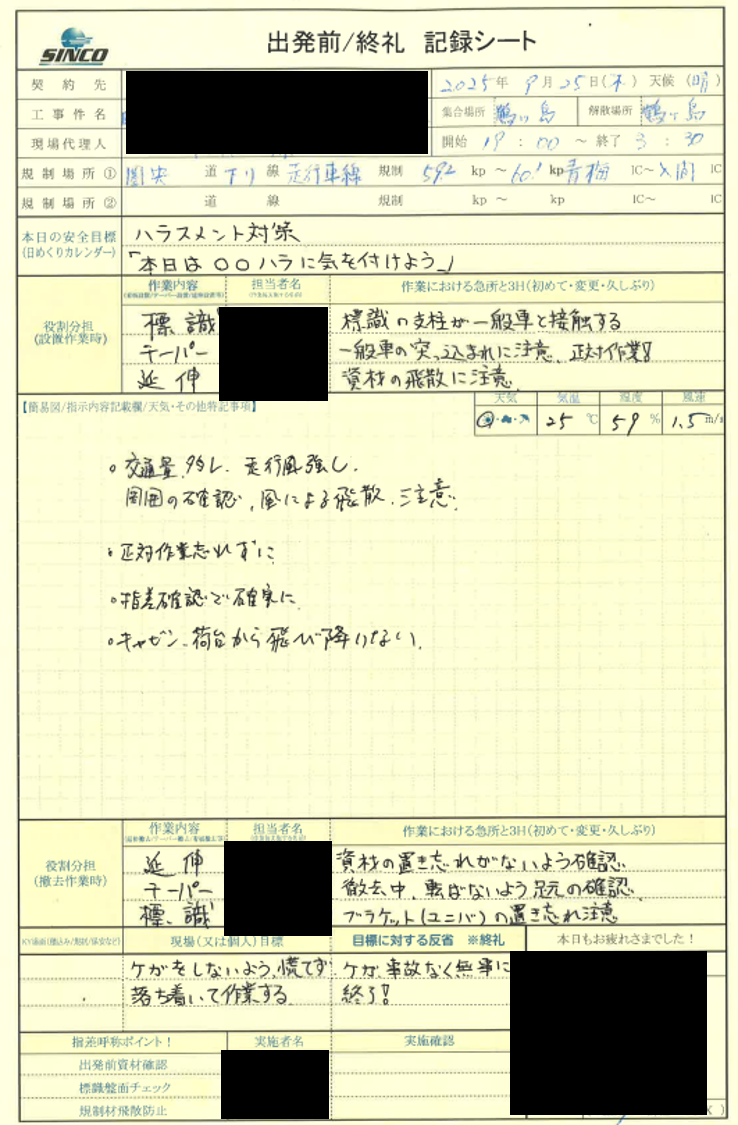 SINCO
出発前/終礼 記録シート
契約先
2025年 9月 25日(木) 天候 (晴)
工事件名
集合場所 鶴ヶ島 解散場所 鶴ヶ島
現場代理人
開始 19:00 ~ 終了 3:30
規制場所① 圏央 道 下り 線 走行車線 規制 59.2 kp ~ 60.1 kp 青梅 IC~ 入間 IC
規制場所② 道 線 規制 kp ~ kp IC~ IC
本日の安全目標 ハラスメント対策
(日めくりカレンダー) 「本日は〇〇ハラに気を付けよう」
作業内容 担当者名 作業における急所と3H(初めて・変更・久しぶり)
役割分担
(設置作業時)
標識 標識の支柱が一般車と接触する
テーパー 一般車の突っ込まれに注意、正対作業!
延伸 資材の飛散に注意
【簡易図/指示内容記載欄/天気・その他特記事項】
天気 気温 湿度 風速
25℃ 59% 1.5m/s
。交通量多し、走行風強し、
周囲の確認、風による飛散、注意
・正対作業忘れずに
。指差確認で確実に
。キャビン、荷台から飛び降りない、
作業内容 担当者名 作業における急所と3H(初めて・変更・久しぶり)
役割分担
(撤去作業時)
延伸 資材の置き忘れがないよう確認
テーパー 撤去中、転ばないよう足元の確認
標識 ブラケット(ユニバ)の置き忘れ注意
現場(又は個人)目標 目標に対する反省 ※終礼 本日もお疲れさまでした!
ケガをしないよう、慌てず ケガ、事故なく無事に
落ち着いて作業する 終了!
指差呼称ポイント! 実施者名 実施確認
出発前資材確認
標識盤面チェック
規制材飛散防止